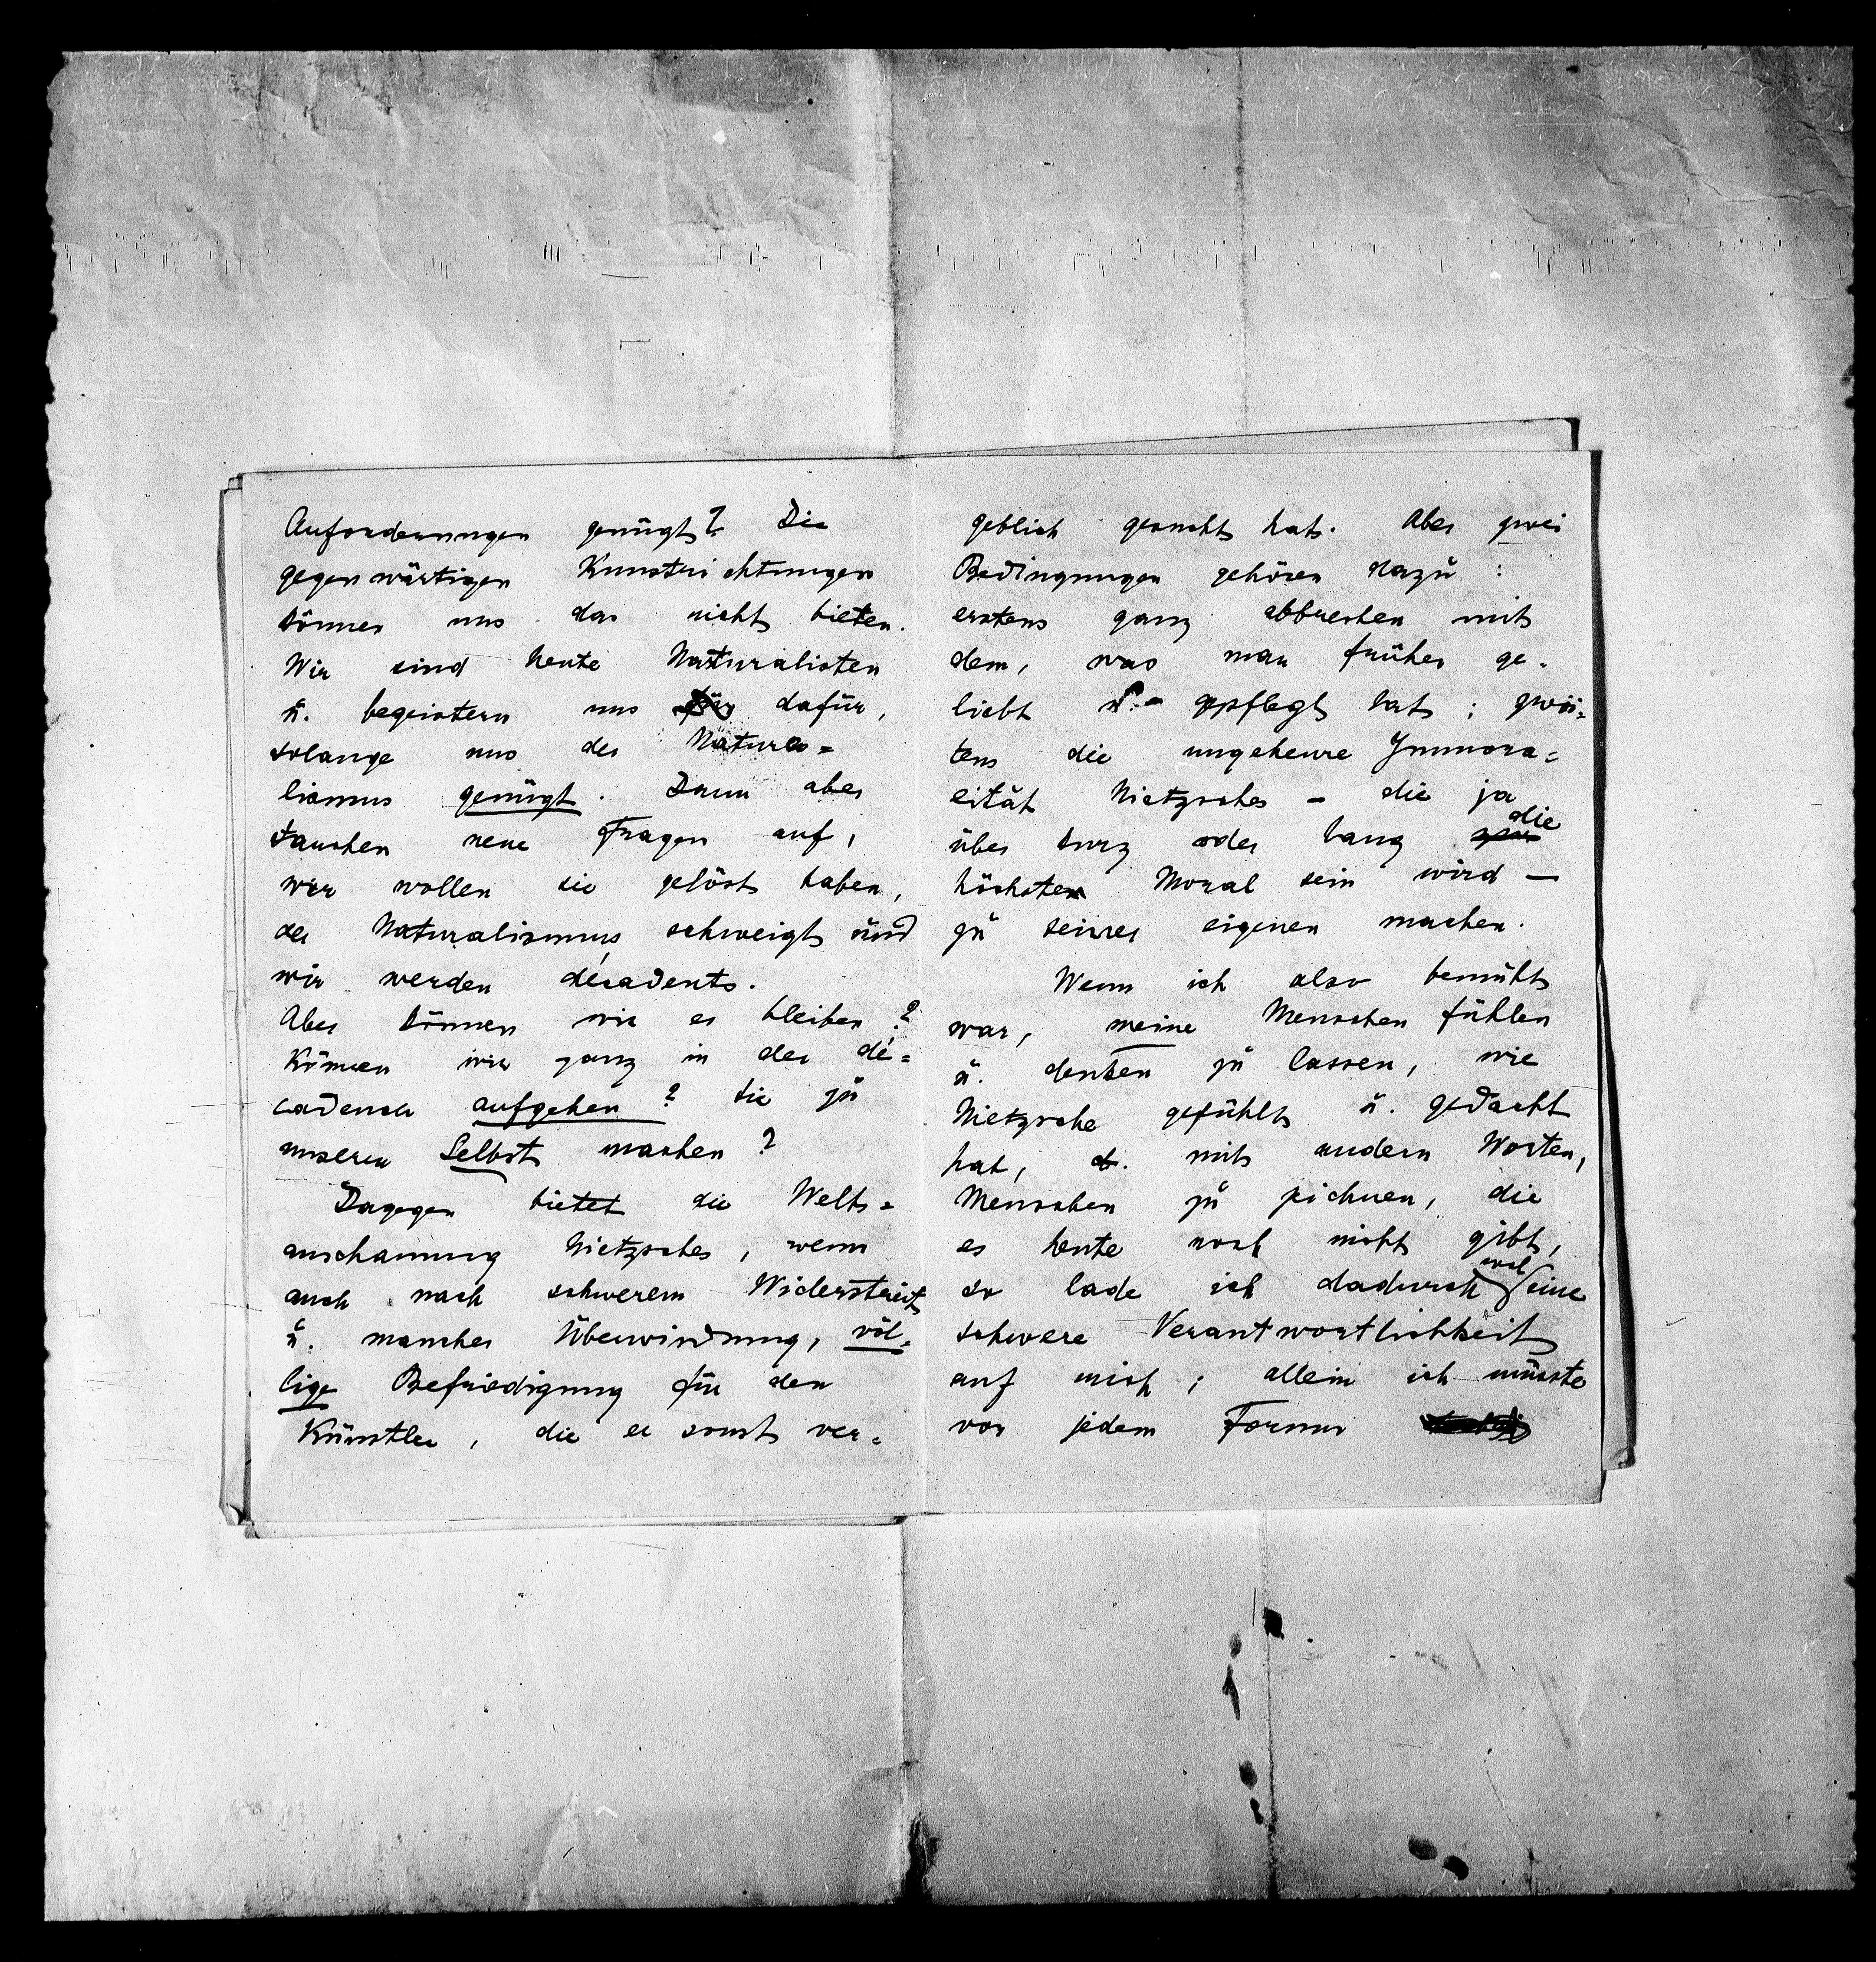 Anforderungen genügt? Die
gegenwärtigen Kunstrichtungen
können uns das nicht bieten.
Wir sind heute Naturalisten
u. begeistern uns für dafür,
solange uns der Natura=
lismus genügt. Dann aber
tauchen neue Fragen auf,
wir wollen sie gelöst haben,
der Naturalismus schweigt und
wir werden décadents.
Aber können wir es bleiben?
Können wir ganz in der dé=
cadence aufgehen? Sie zu
unserem Selbst machen?
Dagegen bietet die Welt=
anschauung Nietzsches, wenn
auch nach schwerem Widerstreit
u. mancher Überwindung, völ=
lige Befriedigung für den
Künstler, die er sonst ver=
geblich gesucht hat. Aber zwei
Bedingungen gehören dazu:
erstens ganz abbrechen mit
dem, was man früher ge=
liebt u. gepflegt hat; zwei=
tens die ungeheure Immora=
lität Nietzsches – die ja
über kurz oder lang zur die
höchsten Moral sein wird –
zu seiner eigenen machen.
Wenn ich also bemüht
war, meine Menschen fühlen
u. denken zu lassen, wie
Nietzsche gefühlt u. gedacht
hat, d. mit andern Worten,
Menschen zu zeichnen, die
es heute noch nicht gibt,
so lade ich dadurch wol eine
schwere Verantwortlichkeit
auf mich; allein ich müsste
vor jedem Forum